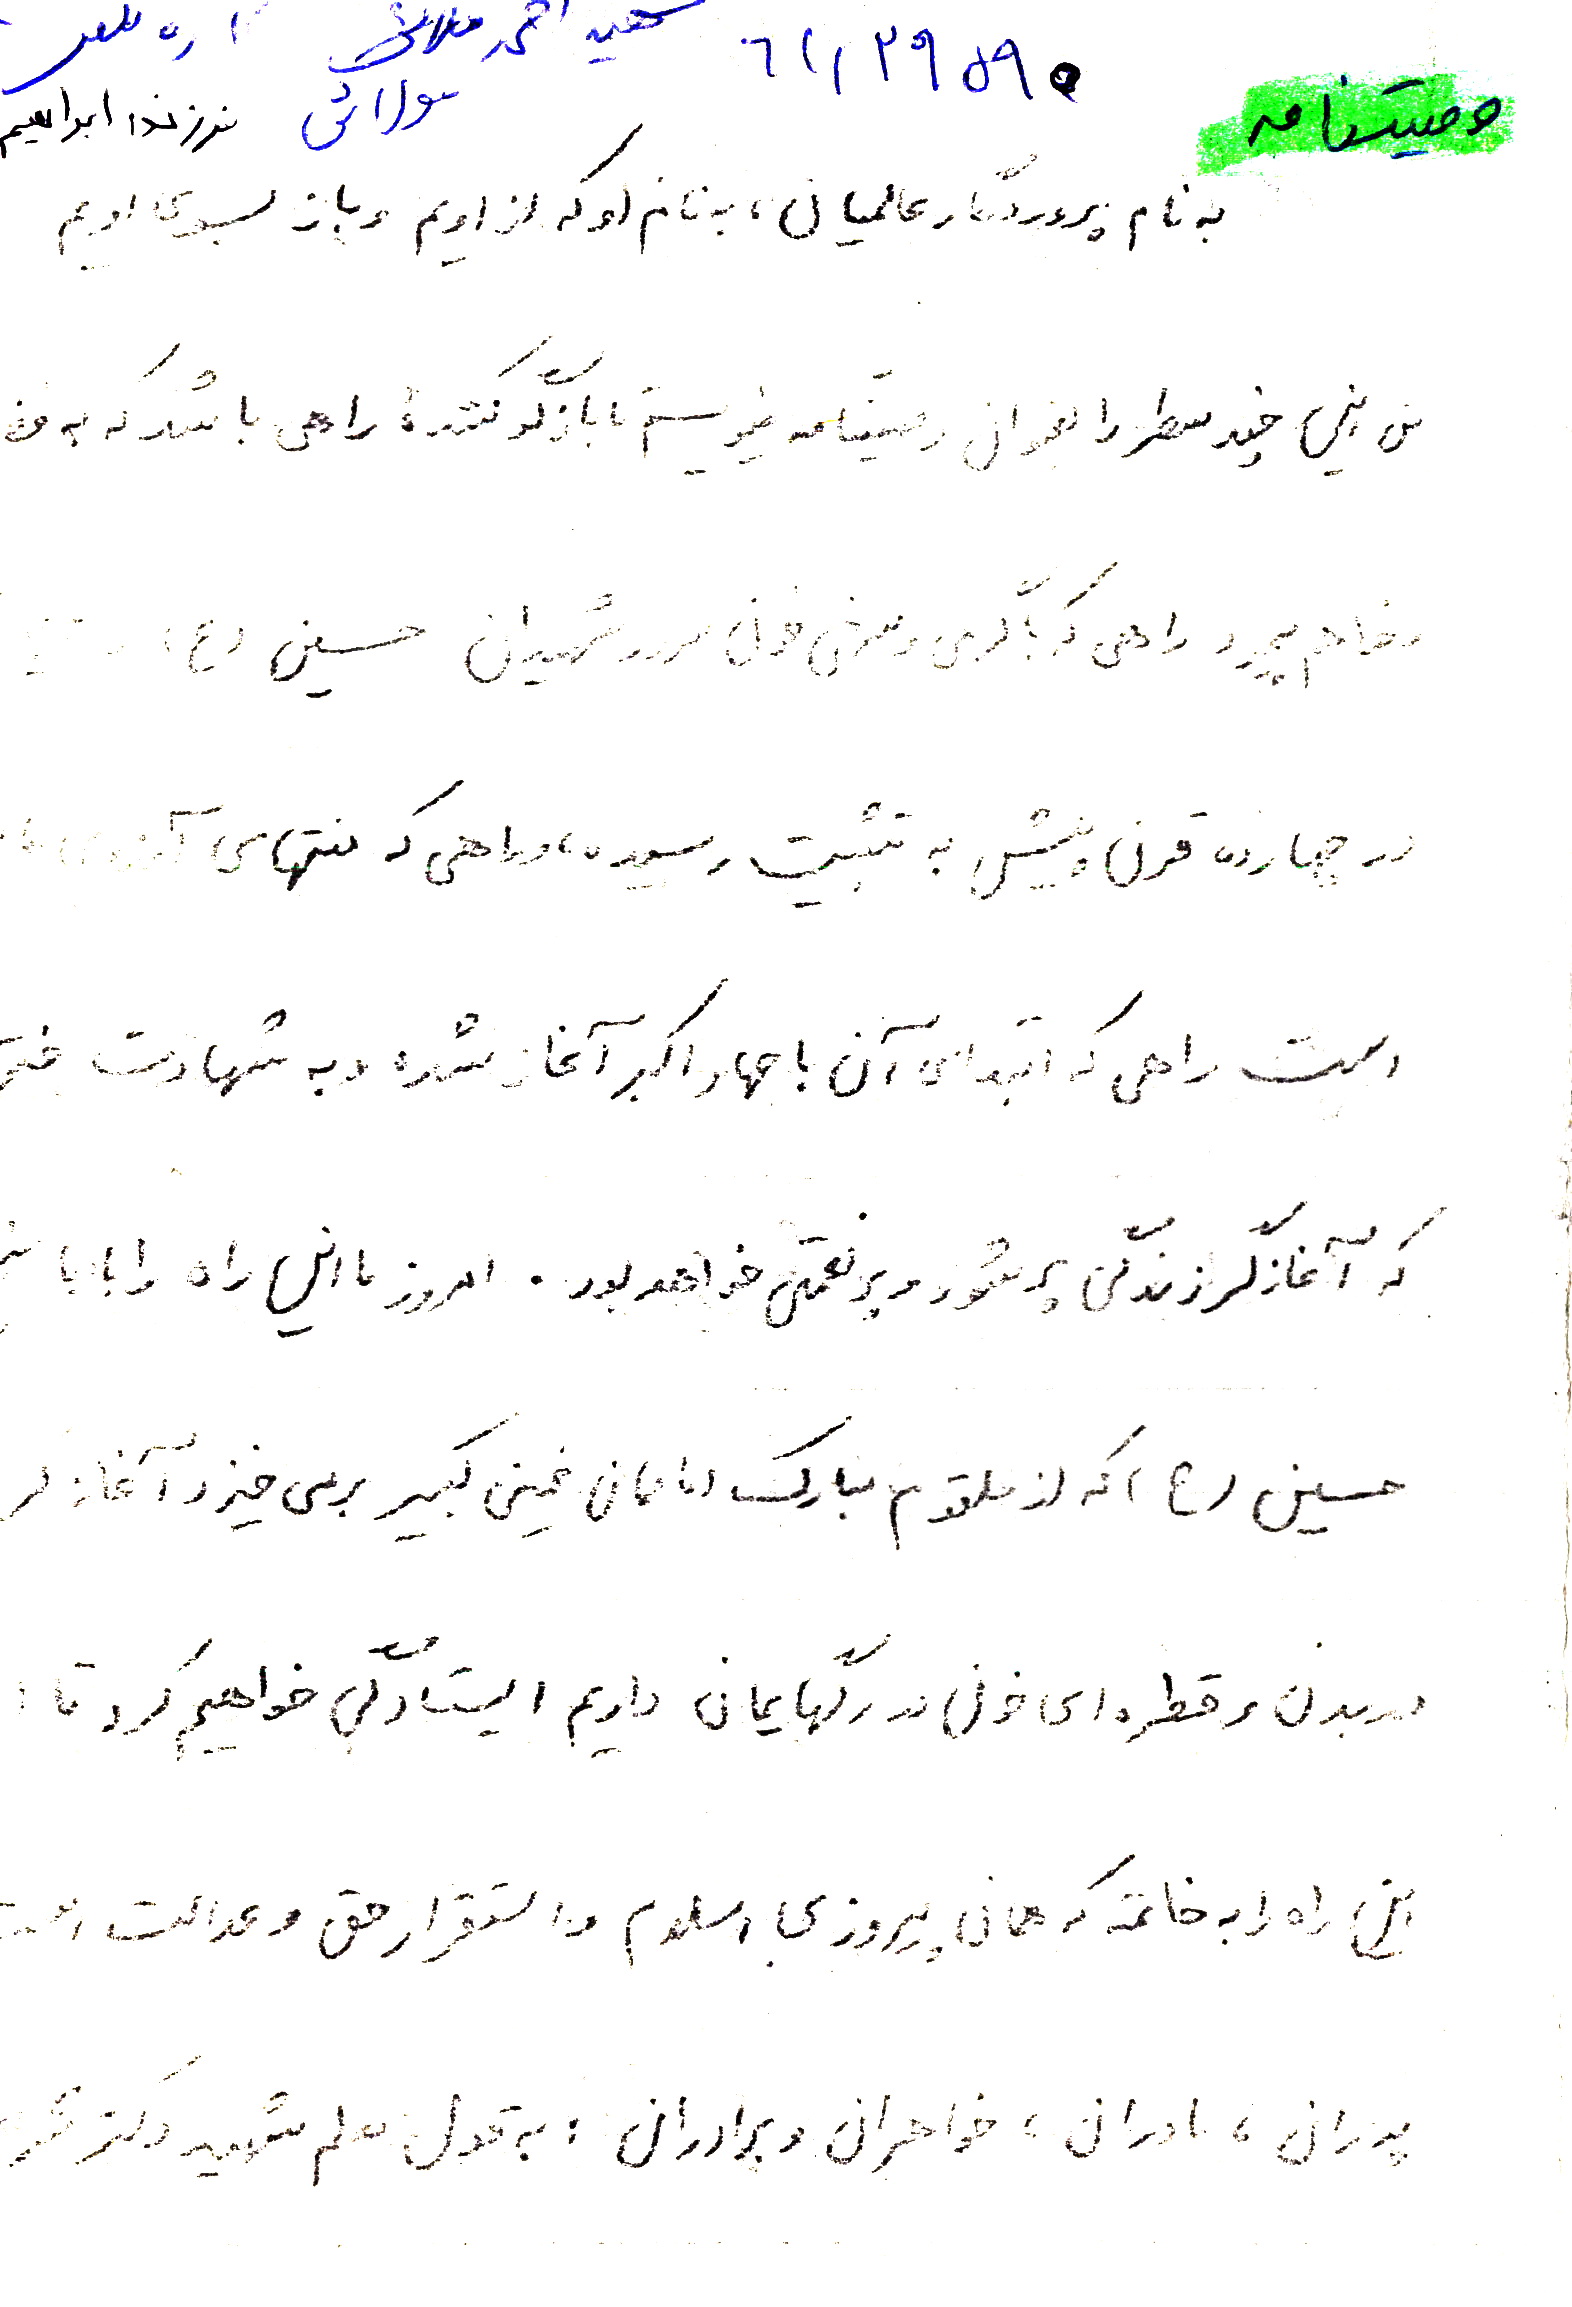 شهید احمد
۶۱۱۲۹۵۹۰
وصیتنامه
فرزند ابراهیم
به نام پروردگار عالمیان، به نام او که از اویم و باز بسوی اویم
من این چند سطر را بعنوان وصیتنامه مینویسم تا بازگو کنندهٔ راهی باشد که به
راهی که با گرمی و سرخی خون سرور شهیدان حسین (ع)
در چهارده قرن پیش به تثبیت رسیده، راهی که منتهای
است راهی که ابتدای آن با جهاد اکبر آغاز شده و به شهادت
که آغازگر زندگی پر شور و پر نعمتی خواهد بود. امروز ما این راه را با
حسین (ع) که از حلقوم مبارک امامان خمینی کبیر برمی خیزد آغاز
در بدن و قطره ای خون در رگهایمان داریم ایستادگی خواهیم کرد تا
این راه را به خاتمه که همان پیروزی اسلام و استقرار حق و عدالت است
پدران، مادران، خواهران و برادران: به قول معلم شهید دکتر